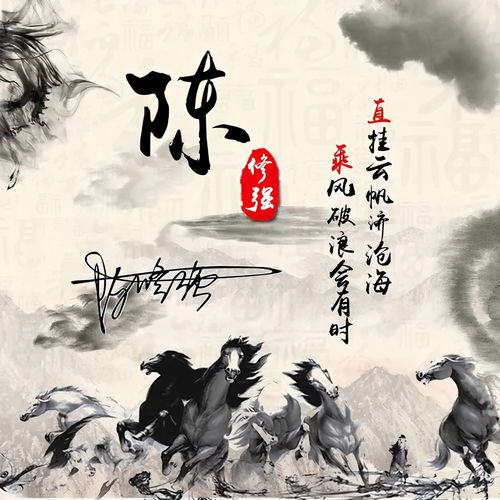 陈
修强
直挂云帆济沧海
乘风破浪会有时
陈修强